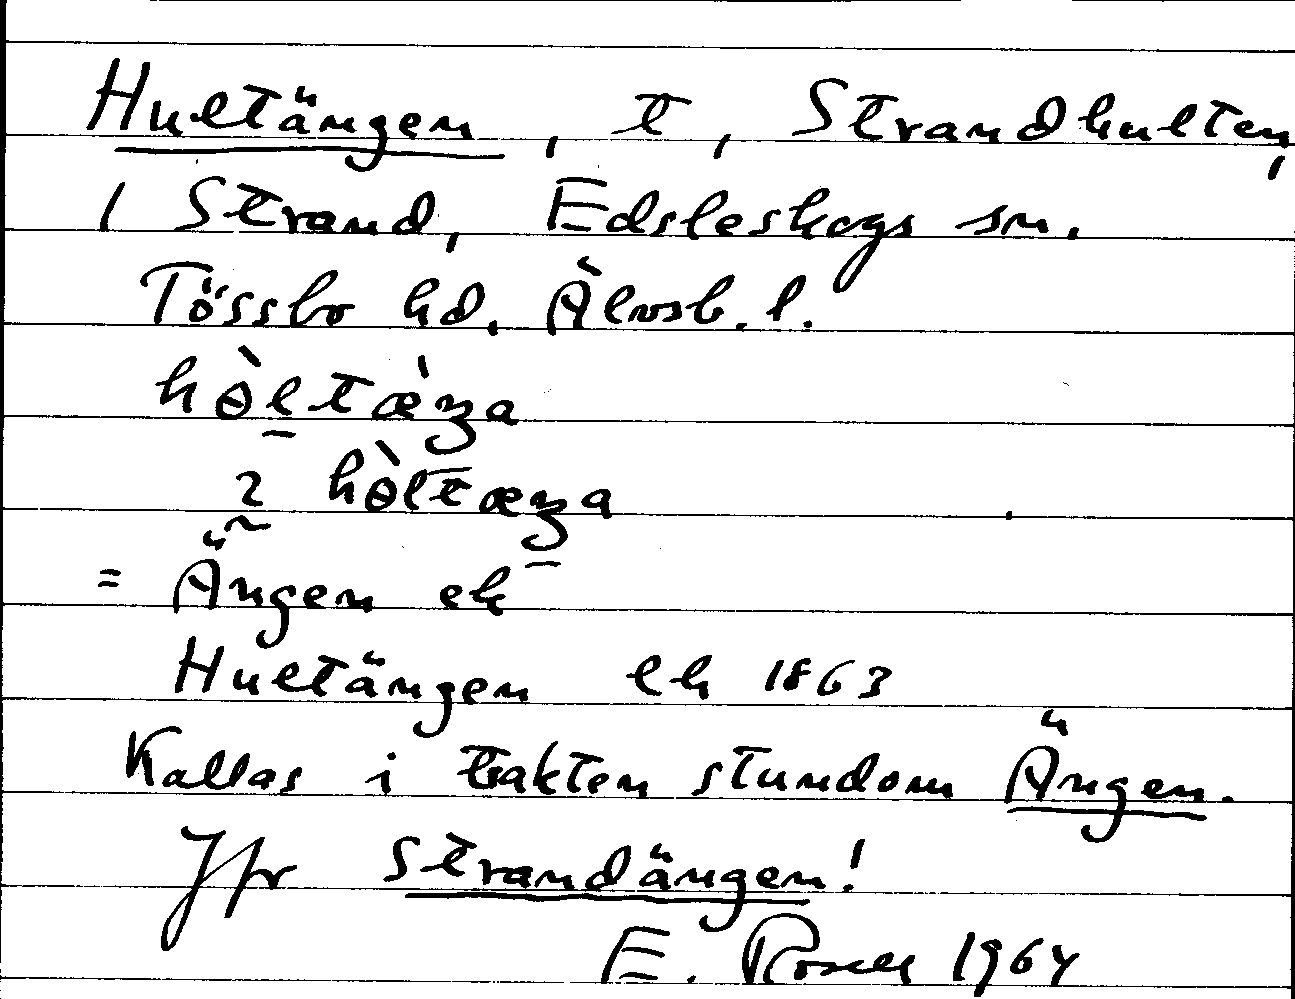 Hultängen, t, Strandhulten,
1 Strand, Edsleskogs sn.
Tössbo hd. Älvsb. l.
hɵ̀ltæ̀ŋa
2 hɵ̀ltæŋa
= Ängen ek
Hultängen lh 1863
Kallas i trakten stundom Ängen.
Jfr Strandängen!
E. 1964